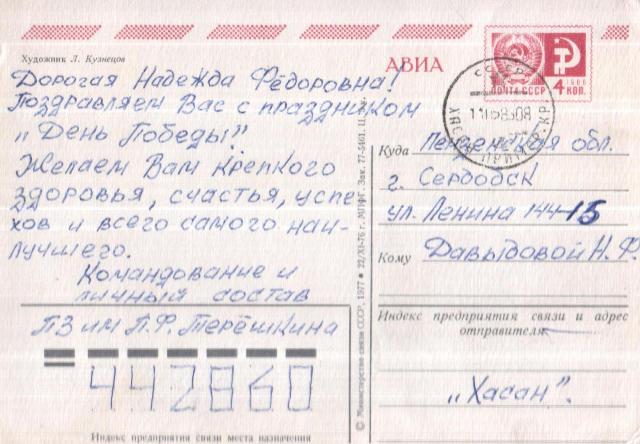 Художник Л. Кузнецов
АВИА
ПОЧТА СССР
1966
4 КОП.
Дорогая Надежда Фёдоровна!
Поздравляем Вас с праздником
„День Победы".
Желаем Вам крепкого
здоровья, счастья, успе
хов и всего самого наи-
лучшего.
Командование и
личный состав
ПЗ им П.Ф. Терёшкина
442860
Индекс предприятия связи места назначения
© Министерство связи СССР, 1977 • 22/XI-76 г. МПФГ. Зак. 27-5461. Ц.
СССР
ХАСАН ПРИМОР. КР
Куда Пензенская обл.
г. Сердобск
ул. Ленина 144-15
Кому Давыдовой Н.Ф.
Индекс предприятия связи и адрес
отправителя
„Хасан".